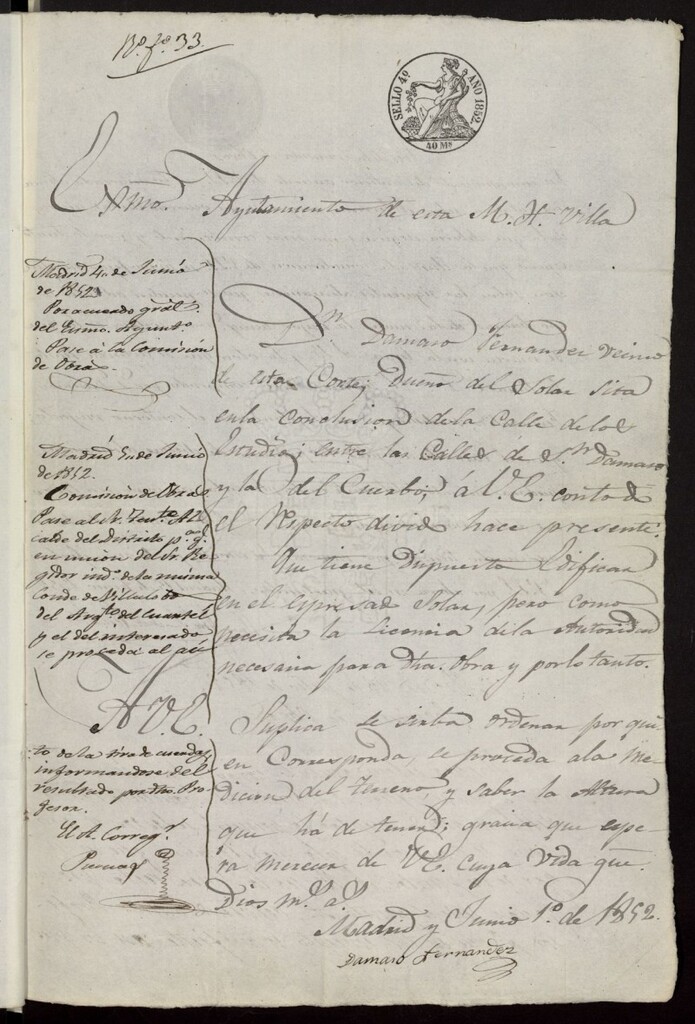 Nº. fº. 33.
SELLO 4º AÑO 1852.
40 Ms
Exmo. Ayuntamiento de esta M. H. Villa
Madrid 4 de Junio
de 1852
Por acuerdo gral.
del Exmo. Ayunto.
Pase á la Comisión
de Obras.
Dn. Damaso Fernandez Vecino
de esta Corte, Dueño del Solar sita
en la Conclusion de la Calle de los
Estudios, entre las Calles de Sn. Damaso
y la del Cuerbo, á V.E. con todo
el Respecto divido hace presente.
Que tiene Dispuesto Edificar
en el espresado Solar, pero como
necesita la Licencia de la Autoridad
necesaria para dha. Obra y por lo tanto.
Madrid 5 de Junio
de 1852.
Comision de Obras
Pase al Sr. Tente. Al
calde del distrito pa. q.
en union del Sr. Re
gidor indo. de la misma
Conde de
del Arqto. del Cuartel
y el del interesado
se proceda al ac
A V.E. Suplica se sirba ordenar por qui
en Corresponda, se proceda a la Me
dicion del Terreno, y Saber la Altura
que há de tener; gracia que espe
ra merecer de V.E. Cuya Vida gue.
Dios ms. as.
to de la tira de cuerdas,
informandose del
resultado por dho. Pro
fesor.
El A. Corregr.
Madrid y Junio 1º de 1852.
Damaso Fernandez